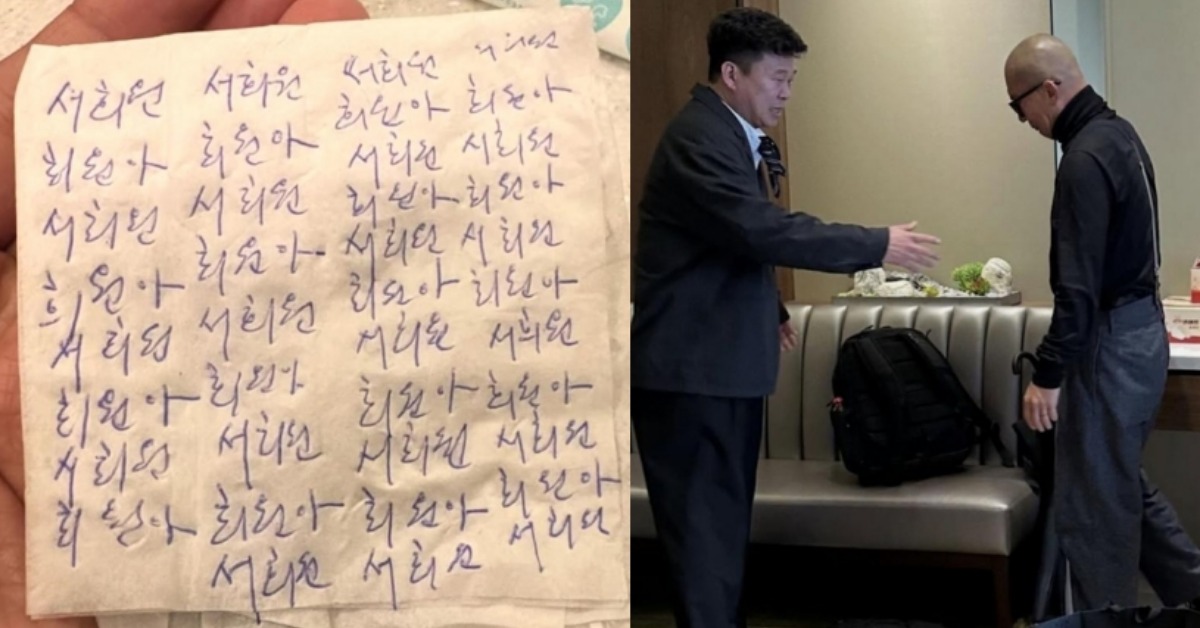 서희원
희원아
서희원
희원아
서희원
희원아
서희원
희원아
서희원
희원아
서희원
희원아
서희원
희원아
서희원
희원아
서희원
서희원
희원아
서희원
희원아
서희원
희원아
서희원
희원아
서희원
희원아
서희원
서희원
희원아
서희원
희원아
서희원
희원아
서희원
희원아
서희원
희원아
서희원